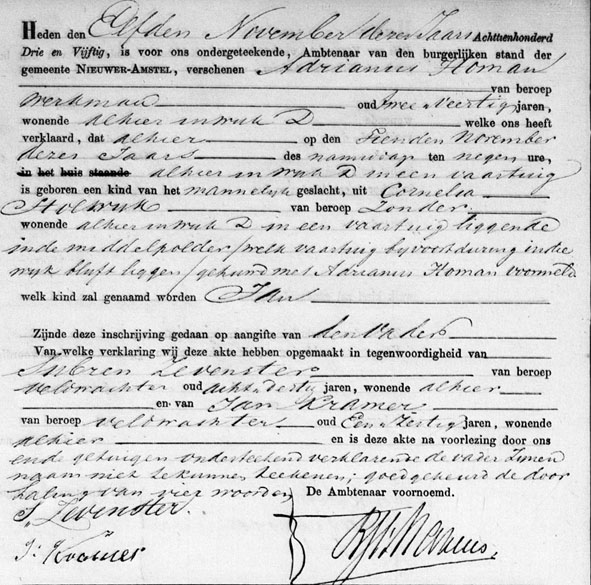 Heden den Elfden November dezes Jaars Achttienhonderd
Drie en Vijftig, is voor ons ondergeteekende, Ambtenaar van den burgerlijken stand der
gemeente NIEUWER-AMSTEL, verschenen Adrianus Homan
van beroep
werkman oud twee & veertig jaren,
wonende alhier in wijk D welke ons heeft
verklaard, dat alhier op den Tienden November
dezes Jaars des namiddags ten negen ure,
in het huis staande alhier in wijk D in een vaartuig
is geboren een kind van het mannelijk geslacht, uit Cornelia
Stolwijk van beroep Zonder
wonende alhier in wijk D in een vaartuig liggende
in de middelpolder /welk vaartuig bij voortduring in die
wijk blijft liggen/ gehuwd met Adrianus Homan voormeld
welk kind zal genaamd worden Jan
Zijnde deze inschrijving gedaan op aangifte van den Vader
Van welke verklaring wij deze akte hebben opgemaakt in tegenwoordigheid van
Sybren Zevenster van beroep
veldwachter oud acht & dertig jaren, wonende alhier
en van Jan Kramer
van beroep veldwachter oud Een & dertig jaren, wonende
alhier en is deze akte na voorlezing door ons
en de getuigen onderteekend verklarende de vader zijnen
naam niet te kunnen teekenen; goedgekeurd de door
haling van vier woorden
De Ambtenaar voornoemd.
S. Zevenster.
J: Kramer